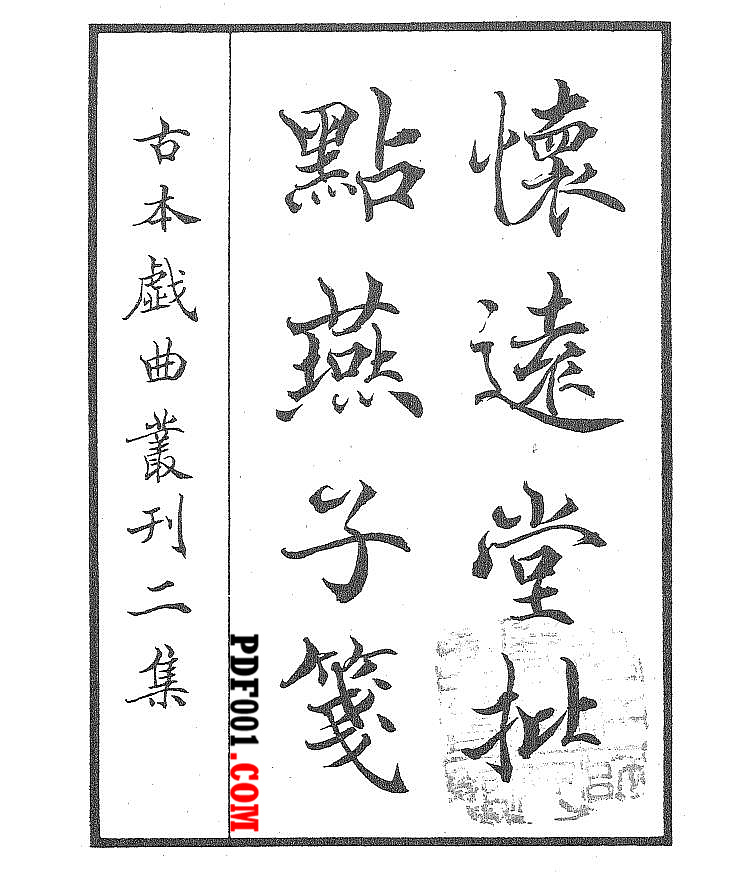 懷遠堂批
點燕子箋
古本戯曲叢刊二集
PDF001.COM